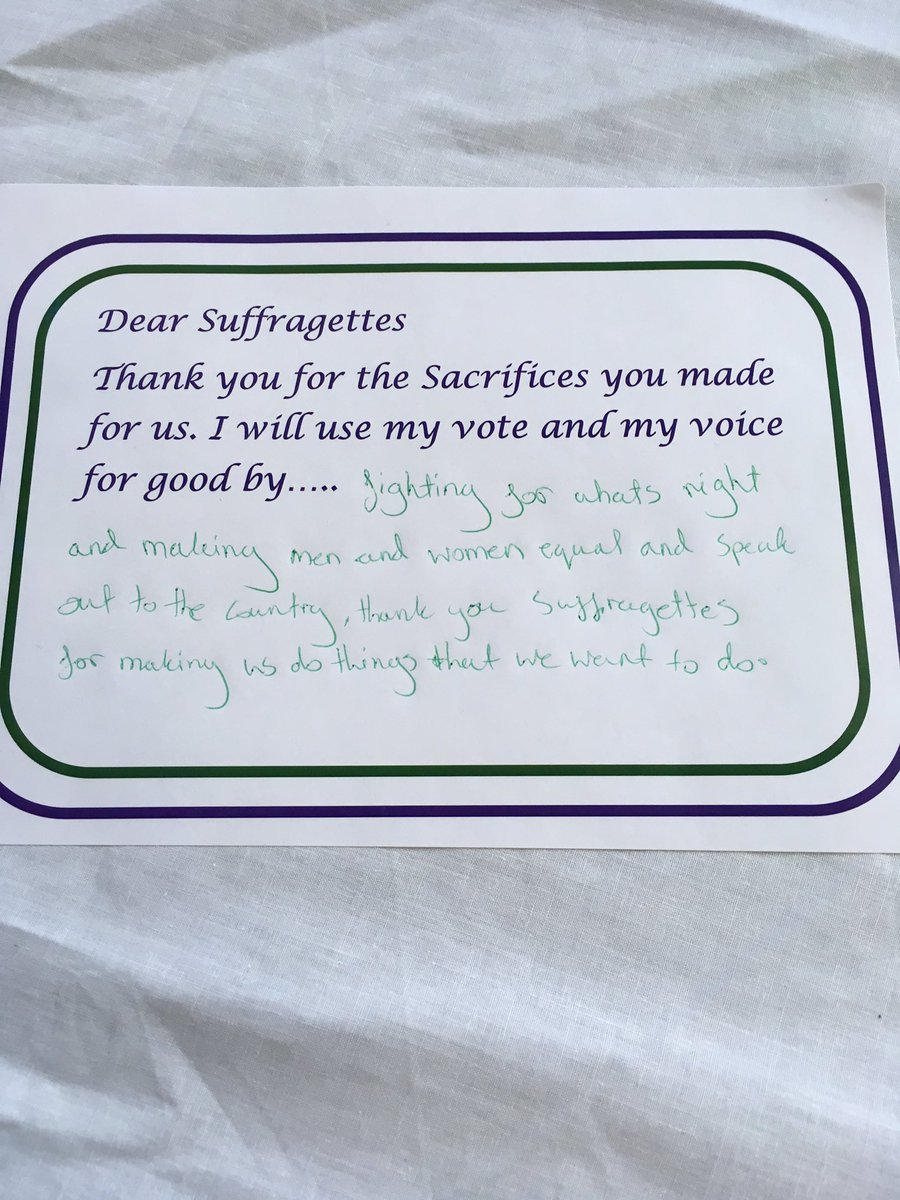 Dear Suffragettes
Thank you for the Sacrifices you made
for us. I will use my vote and my voice
for good by..... fighting for whats right
and making men and women equal and speak
out to the country, thank you suffragettes
for making us do things that we want to do.